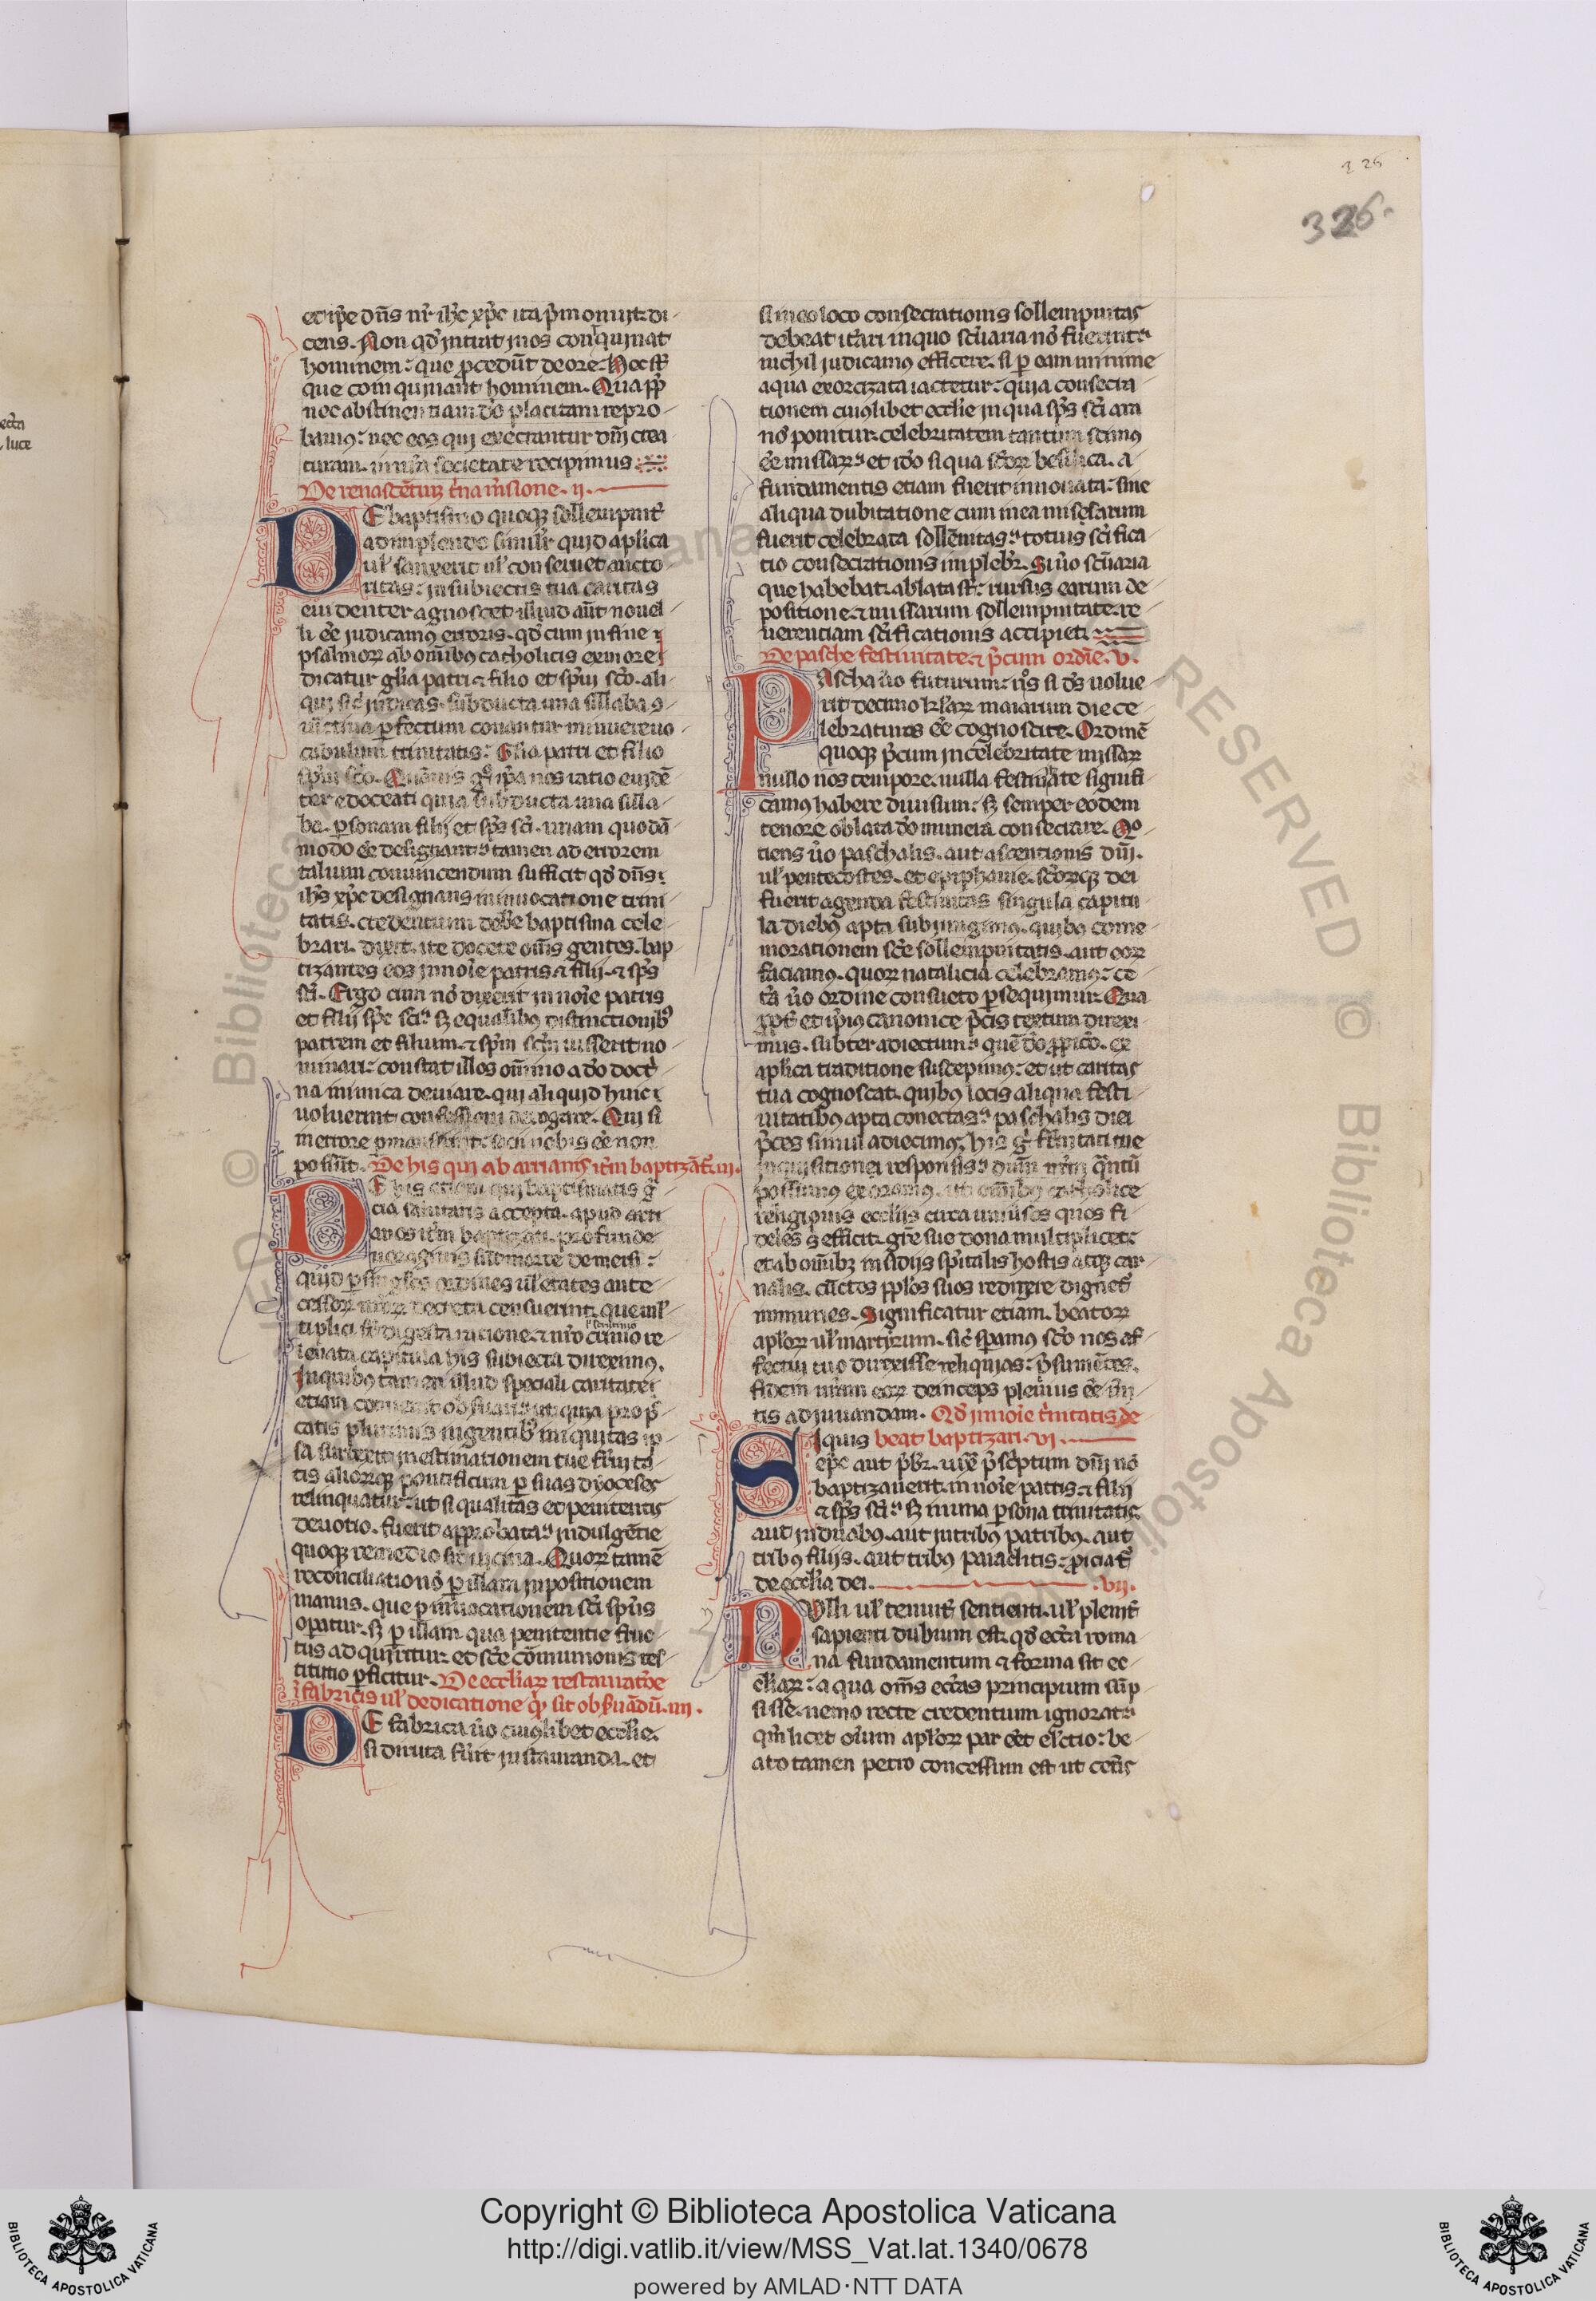 326
326.
et ip̄e dn̄s nr̄ ih̄c xp̄c ita p̄monuit di-
cens. Non qd̓ intrat in os conquinat
hominem: que ꝓcedūt de ore. hec st̄
que coinquinant hominem. Quaꝓp̄
nec abstinentiam do placitam repro-
bamꝰ: nec eos qui execrantur dn̄i crea-
turam. in nr̄a societate recipimus
De renascētiū t̓na m̓sione. ii.
DE baptismo quoqꝫ sollempnit̓
adimplendo simil̓r quid aplica
ul̓ sanxerit ul̓ conseruet aucto
ritas: in subiectis tua caritas
euidenter agnoscet illud aūt nouel-
li eē iudicamꝰ erroris. qd̓ cum in fine
psalmoꝝ ab om̄ibꝰ catholicis ex more
dicatur gl̓ia patri ⁊ filio et spūi sc̄o. ali-
qui sic̄ indicas. subducta una sillaba ꝯ
perfectum conantur minuere uo-
cabulum trinitatis. Gl̓ia patri et filio
spūi sc̄o. Quāuis g̓ ip̄a nos ratio euidē
ter edoceat quia subducta una silla-
ba. ꝑsonam filij et spūs sc̄i. unam quodā
modo eē designant: tamen ad errorem
talium conuincendum sufficit qd̓ dn̄s
ih̄s xp̄c designans in inuocatione trini
tatis. credentium deb̓e baptisma cele-
brari. dixit. ite docete om̄s gentes. bap-
tizantes eos in noīe patris ⁊ filij. ⁊ spūs
sc̄i. Ergo cum nō dixerit in noīe patris
et filij spūs sc̄i: sꝫ equalibꝰ distinctionibꝰ
patrem et filium. ⁊ spūm sc̄m iusserit no-
minari: constat illos omnino a do doct̓
na inimica deuiare. qui aliquid huic
uoluerint confessioni derogare. Qui si
in errore ꝑmanserint: socii nobis eē non
possūt. De his qui ab arrianis it̓m baptizāt̓. iii.
DE his etiam qui baptismatis g̓
cia salutaris accepta. apud arri
anos it̓m baptizati. profunde
demersi:
quid ꝑ singlos ordines ul̓ etates ante-
cessoꝝ nr̄oꝝ decreta censuerint. que mul̓
tiplici digesta ratione. ⁊ nr̄o re-
leuata capitula his subiecta direximꝰ.
In quibꝰ tamen illud speciali caritate
etiam conuenit obseruari: ut quia pro p̓
catis plurimis ingentibꝰ iniquitas ip-
sa surrexit in estimationem tue fr̄nita-
tis alioꝝqꝫ pontificum ꝑ suas dyoceses
relinquatur: ut si qualitas et penitentis
deuotio. fuerit approbata: indulgētie
quoqꝫ remedio sit uicina. Quoꝝ tamē
reconciliatio nō ꝑ illam inpositionem
manus. que ꝑ inuocationem sc̄i spūs
oꝑatur. sꝫ ꝑ illam qua penitentie fruc-
tus adquiritur. et sc̄e cōmunionis res-
titutio ꝑficitur. De eccl̓iaꝝ restaurat̓oe
ī fabricis ul̓ dedicatione q̓ sit obs̓uādū. iiii.
DE fabrica ū̓o cuiuslibet eccl̓ie.
si diruta fūit instauranda. et
si in eo loco consecrationis sollempnitas
debeat it̓ari in quo sc̄uaria nō fuerint:
nichil iudicamꝰ efficere. si ꝑ eam minime
aqua exorcizata iactetur: quia consecra-
tionem cuiꝰlibet eccl̓ie in qua spūs sc̄i ara
nō ponitur. celebritatem tantum scimꝰ
eē missaꝝ: et ido si qua sc̄oꝝ basilica. a-
fundamentis etiam fuerit innouata: sine
aliqua dubitatione cum in ea missarum
fuerit celebrata sollēnitas: totius sc̄ifica-
tio consecrationis implebr̄. Si ū̓o sc̄uaria
que habebat. ablata st̄: rursus earum de-
positione. ⁊ missarum sollempnitate. re-
uerentiam sc̄ificationis accipiet.
De pasche festiuitate. ⁊ p̓cum ordīe. v.
PAscha ū̓o futurum: nos si ds̄ uolue-
rit decimo kl̓aꝝ maiarum die ce-
lebraturos eē cognoscite. Ordinē
quoqꝫ p̓cum in celebritate missaꝝ
nullo nos tempore. nulla festiuitate signifi-
camꝰ habere diuisum: sꝫ semper eodem
tenore oblata do munera consecrare. Quo-
tiens ū̓o paschalis. aut ascentionis dn̄i.
ul̓ pentecostes. et epiphanie. sc̄oꝝqꝫ dei
fuerit agenda festiuitas singula capitu-
la diebꝰ apta subiungimꝰ. quibꝰ come-
morationem sc̄e sollempnitatis. aut eoꝝ
faciamꝰ. quoꝝ natalicia celebramꝰ: ce-
t̓a ū̓o ordine consueto ꝑsequimur. Qua
ꝓpt̓ et ip̄ius canonice p̓cis textum direxi-
mus. subter adiectum: quē do ꝓpicio. ex
aplica traditione suscepimꝰ: et ut caritas
tua cognoscat. quibꝰ locis aliqua festi-
uitatibꝰ apta conectas: paschalis diei
p̓ces simul adiecimꝰ. his g̓ fr̄nitati tue
inquisitionei responsis: dn̄m nr̄m q̓ntū
possumus exoramꝰ. ut om̄ibꝰ catholice
religionis eccl̓ijs circa uniūsos quos fi-
deles q̓ efficit. gr̄e sue dona multiplicet:
et ab om̄ibꝫ insidijs spūtalis hostis atqꝫ car-
nalis. cūctos ppl̓os suos redigere dignet̓
immunes. Significatur etiam. beatoꝝ
apl̓oꝝ ul̓ martirum. sic̄ spamus sc̄o nos af-
fectui tuo direxisse reliquias: p̓sumētes.
fidem nr̄am eoꝝ deinceps plenius eē m̓i-
tis adiuuandam. Qd̓ in noīe t̓nitatis de-
SIquis beat baptizari. vi.
ep̄c aut p̓br̄. iuxͣ p̓sc̓ptum dn̄i nō
baptizauerit. in noīe patris. ⁊ filij
⁊ spūs sc̄i: sꝫ in una ꝑsona trinitatis
aut in duabꝰ. aut in tribus patribꝰ. aut
tribꝰ filijs. aut tribꝰ paraclitis: ꝓiciat̓
de eccl̓ia dei. vii.
Nulli ul̓ tenuit̓ sentienti. ul̓ plenit̓
sapienti dubium est. qd̓ ecc̄ia roma-
na fundamentum ⁊ forma sit ec-
cl̓iaꝝ: a qua om̄s ecc̄ias principium sūp-
sisse. nemo recte credentium ignorat:
qm̄ licet oīum apl̓oꝝ par eēt el̓ctio: be-
ato tamen petro concessum est ut cet̓is
luce
© Biblioteca Apostolica Vaticana
RESERVED
© Biblioteca Apostolica
Copyright © Biblioteca Apostolica Vaticana
http://digi.vatlib.it/view/MSS_Vat.lat.1340/0678
powered by AMLAD·NTT DATA
BIBLIOTECA APOSTOLICA VATICANA
BIBLIOTECA APOSTOLICA VATICANA